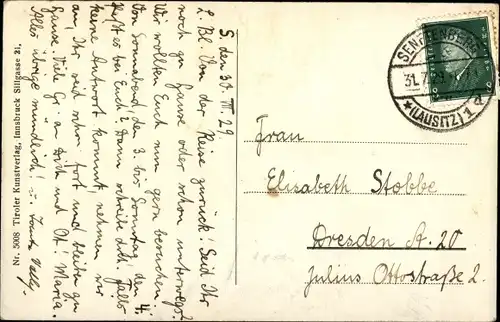 S. den 30. VII 29
L. Bl. Von der Reise zurück! Seid Ihr
noch zu Hause oder schon unterwegs?
Wir wollten Euch nun gern besuchen.
Paßt es bei Euch? Dann schreibe bitte. Falls
Von Sonnabend den 3. bis Sonntag, den 4.
keine Antwort kommt, nehmen wir
an, Ihr seid schon fort und bleiben zu
Hause. Viele Gr. an Dich und O! Maria.
Alles übrige mündlich!
Nr. 5098 Tiroler Kunstverlag, Innsbruck Sillgasse 21.
SENFTENBERG
31.7.29
*(LAUSITZ) 1 d
Frau
Elisabeth Stobbe
Dresden A. 20
Julius Ottostraße 2.